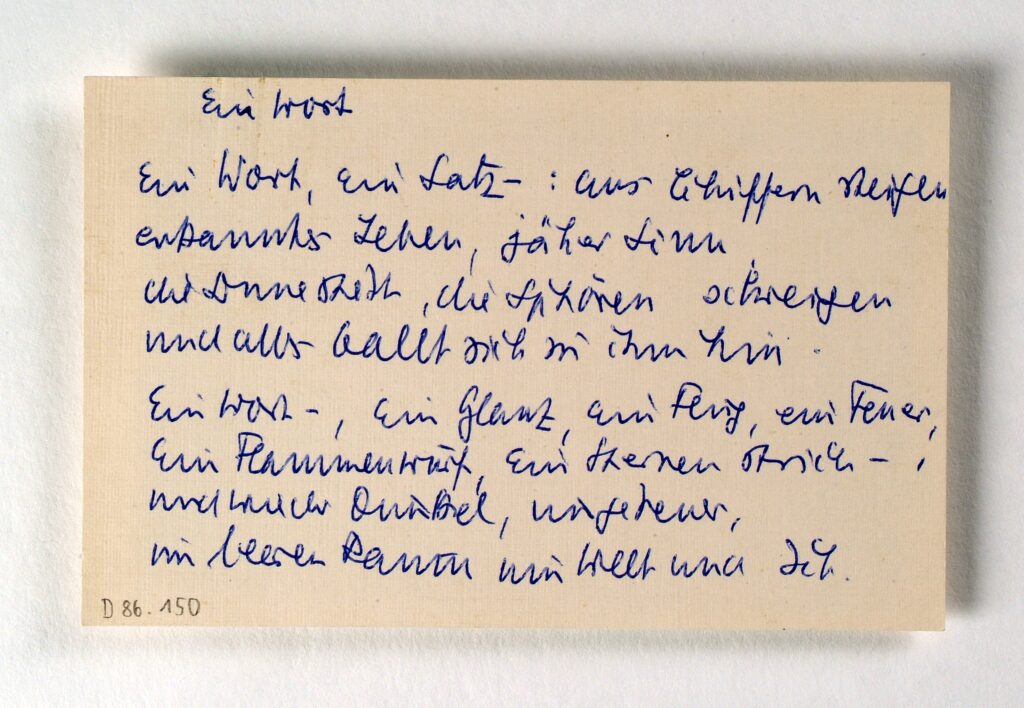 Ein Wort
Ein Wort, ein Satz - : aus Chiffern steigen
erkanntes Leben, jäher Sinn,
die Sonne steht, die Sphären schweigen
und alles ballt sich zu ihm hin.
Ein Wort -, ein Glanz, ein Flug, ein Feuer,
Ein Flammenwurf, ein Sternenstrich - ,
und wieder Dunkel, ungeheuer,
im leeren Raum um Welt und Ich.
D 86.150